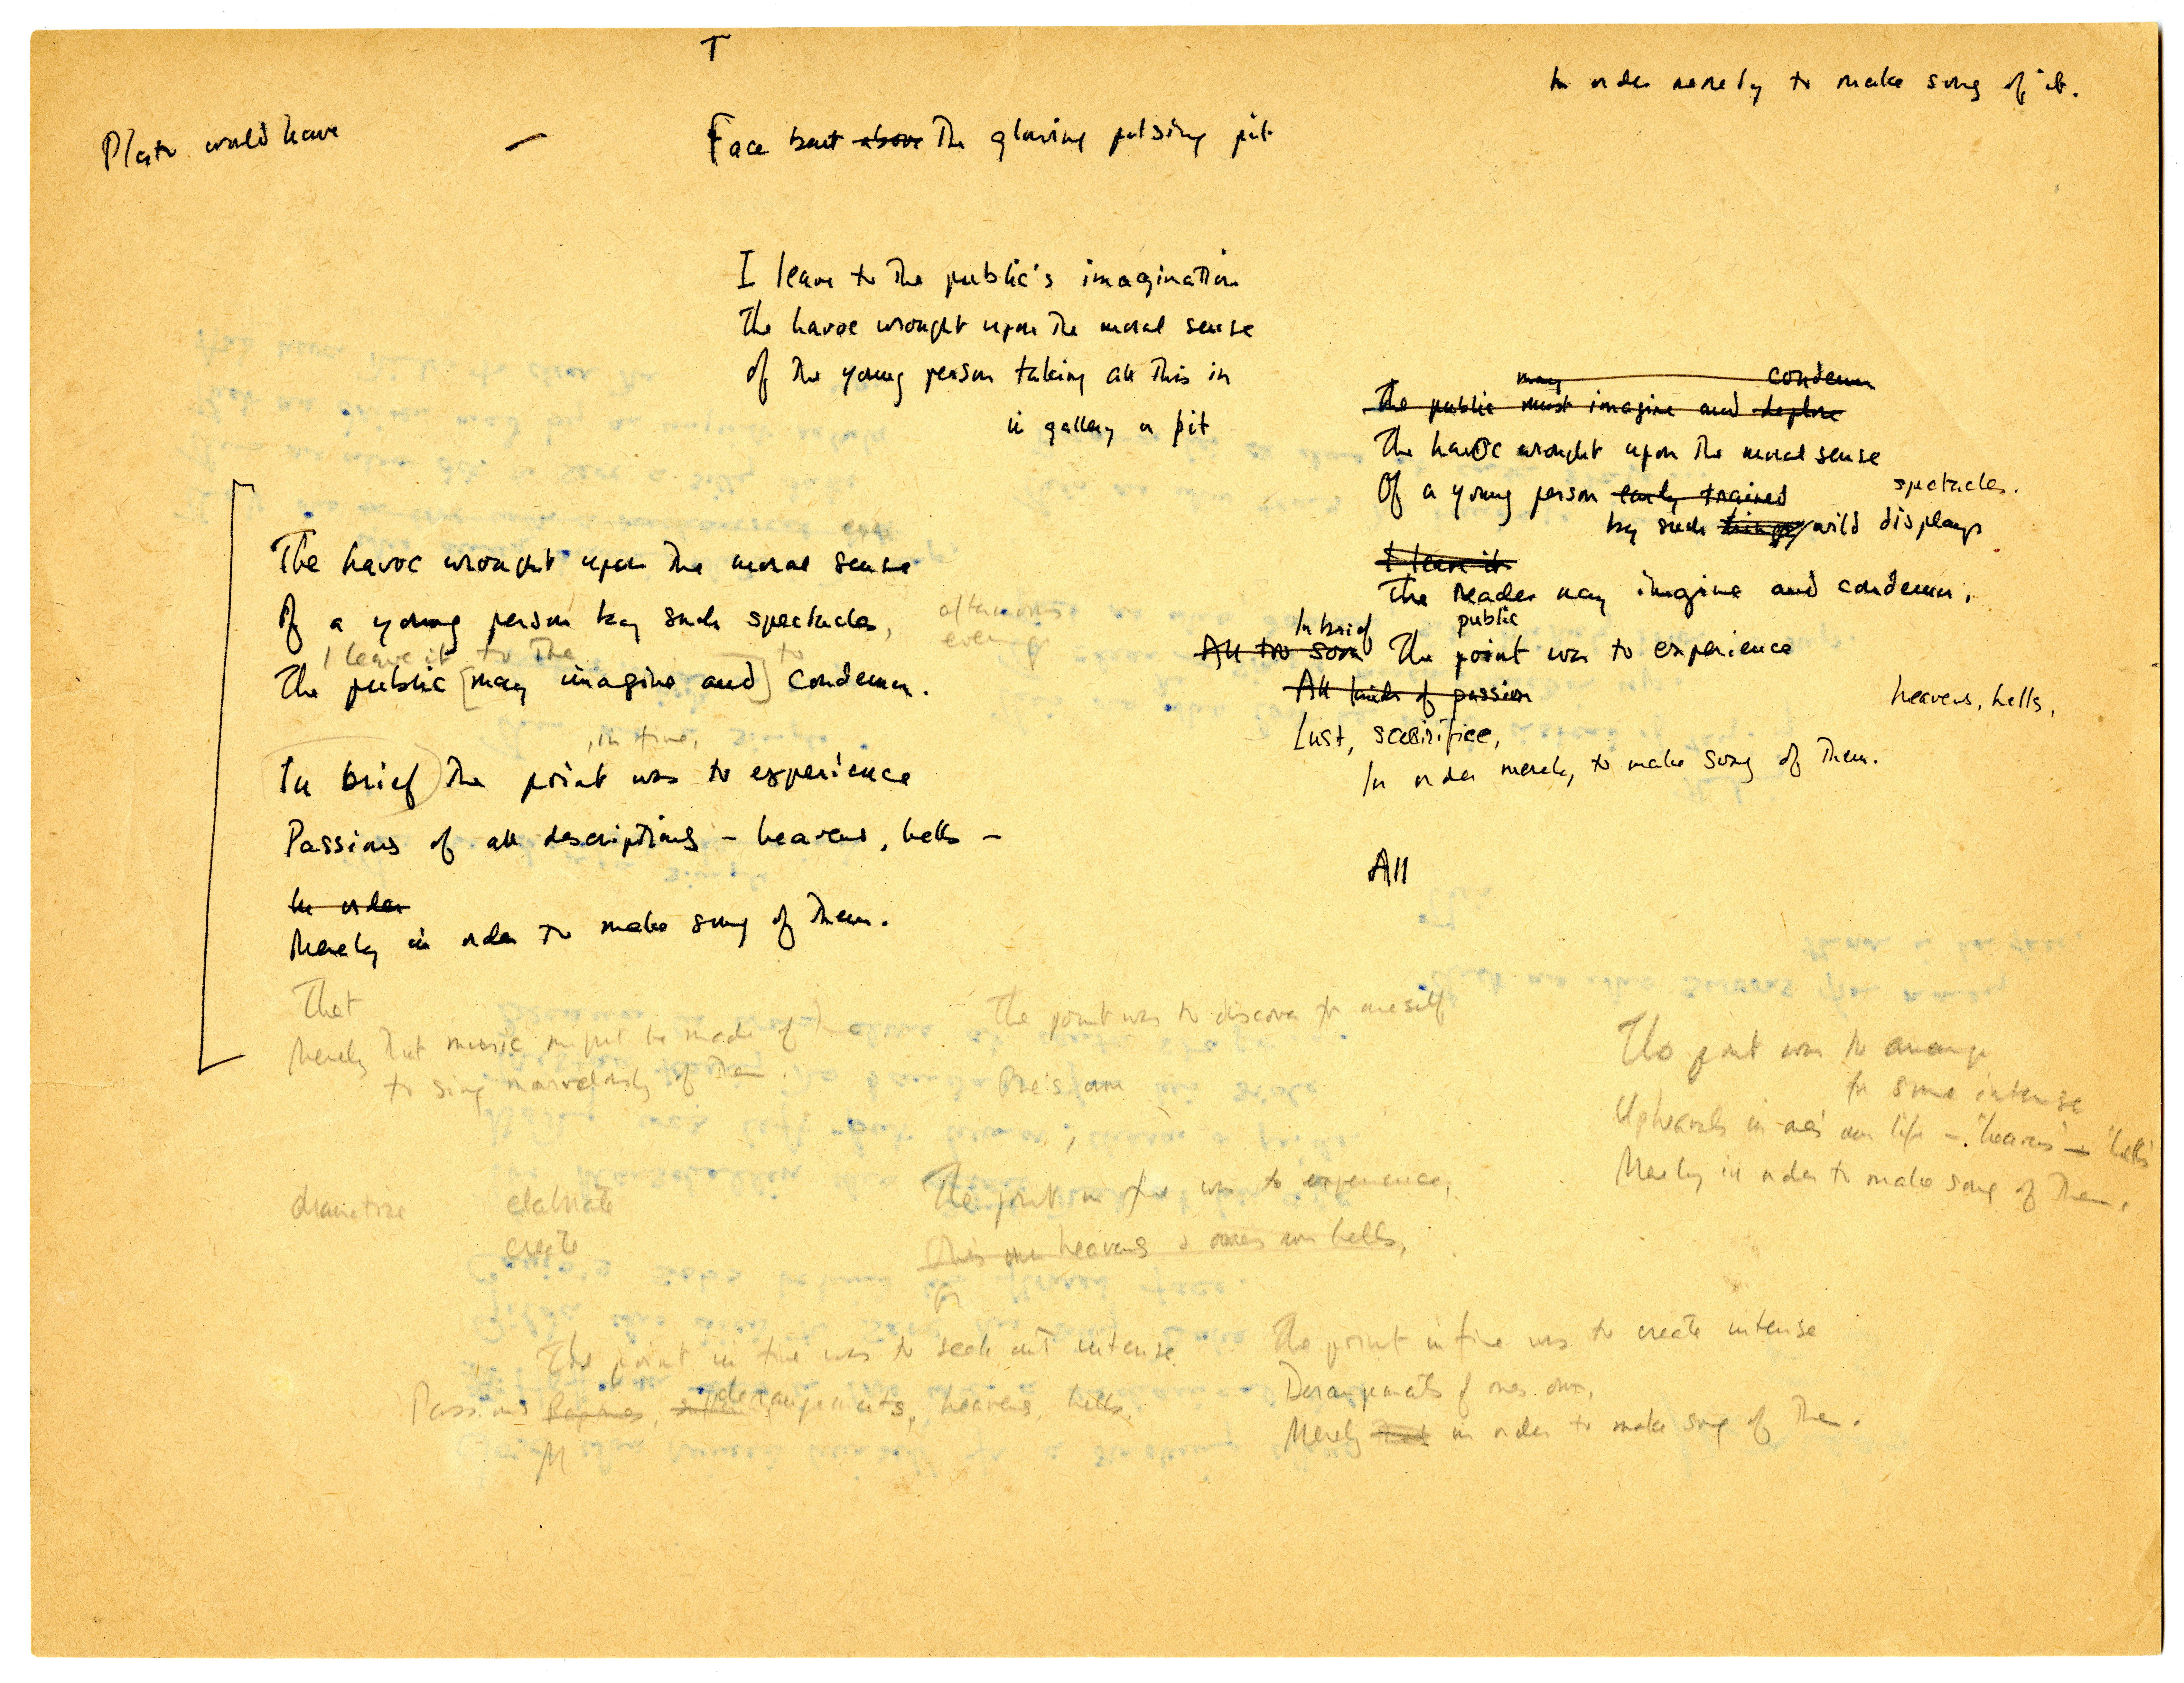 T
In order merely to make song of it.
Plato would have
— Face bent above the glowing pulsing pit
I leave to the public's imagination
The havoc wrought upon the moral sense
Of the young person taking all this in
in gallery or pit
may condemn
The public must imagine and deplore
The havoc wrought upon the moral sense
Of a young person early trained
spectacles.
by such things wild displays
I leave it
The reader may imagine and condemn.
public
In brief
All too soon The point was to experience
All kinds of passion
heavens, hells,
Lust, sacrifice,
In order merely to make song of them.
All
The havoc wrought upon the moral sense
Of a young person by such spectacles,
afternoons
evenings
I leave it to the to
The public [may imagine and] condemn.
, in fine, simple
In brief The point was to experience
Passions of all descriptions – heavens, hells –
In order
Merely in order to make song of them.
That
Merely that music might be made of
to sing marvelously of them.
– The point was to discover for oneself
One's own
The point was to arrange
for some intense
Upheavals in one's own life – 'heavens' – 'hells'
Merely in order to make song of them.
dramatize
elaborate
create
The point in fine was to experience,
One's own heavens & one's own hells,
for
The point in fine was to seek out intense
Passions Raptures, derangements, heavens, hells,
M
The point in fine was to create intense
Derangements of one's own,
Merely that in order to make song of them.